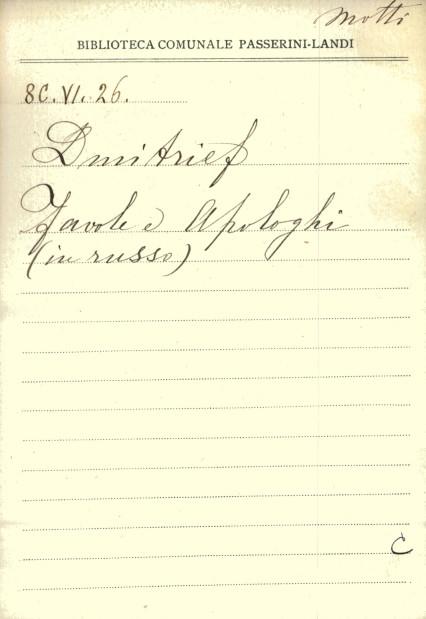 Motti
BIBLIOTECA COMUNALE PASSERINI-LANDI
8C.VI.26.
Dmitrief
Favole e Apologhi
(in russo)
C